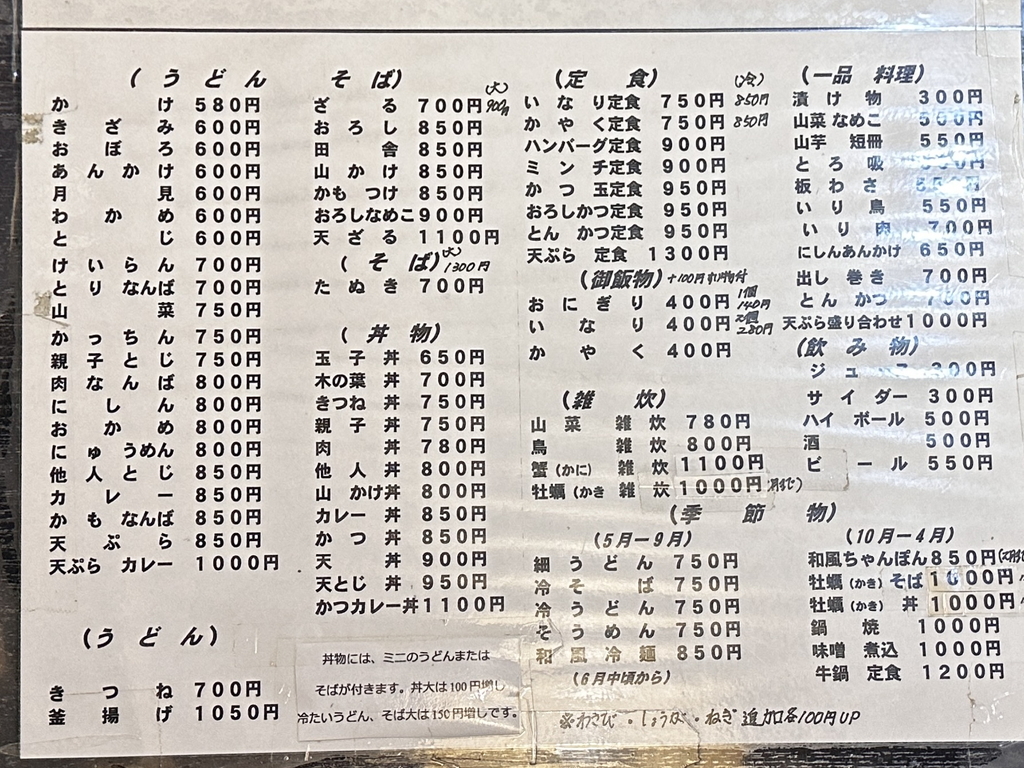 (うどん
かけ 580円
きざみ 600円
おぼろ 600円
あんかけ 600円
月見 600円
わかめ 600円
とじ 600円
けいらん 700円
とりなんば 700円
山菜 750円
かっちん 750円
親子とじ 750円
肉なんば 800円
にしん 800円
おかめ 800円
にゅうめん 800円
他人とじ 850円
カレー 850円
かもなんば 850円
天ぷら 850円
天ぷらカレー 1000円
(うどん)
きつね 700円
釜揚げ 1050円
そば)
ざる 700円 (大) 900円
おろし 850円
田舎 850円
山かけ 850円
かもつけ 850円
おろしなめこ 900円
天ざる 1100円
(大) 1300円
(そば)
たぬき 700円
(丼物)
玉子丼 650円
木の葉丼 700円
きつね丼 750円
親子丼 750円
肉丼 780円
他人丼 800円
山かけ丼 800円
カレー丼 850円
かつ丼 850円
天丼 900円
天とじ丼 950円
かつカレー丼 1100円
丼物には、ミニのうどんまたは
そばが付きます。丼大は100円増し
冷たいうどん、そば大は150円増しです。
(定食) (冷)
いなり定食 750円 850円
かやく定食 750円 850円
ハンバーグ定食 900円
ミンチ定食 900円
かつ玉定食 950円
おろしかつ定食 950円
とんかつ定食 950円
天ぷら定食 1300円
(御飯物) +100円
おにぎり 400円 1個 140円
いなり 400円 2個 280円
かやく 400円
(雑炊)
山菜雑炊 780円
鳥雑炊 800円
蟹(かに)雑炊 1100円
牡蠣(かき雑炊 1000円
(一品料理)
漬け物 300円
山菜なめこ
山芋短冊 550円
とろ吸
板わさ 550円
いり鳥 550円
いり肉 700円
にしんあんかけ 650円
出し巻き 700円
とんかつ
天ぷら盛り合わせ 1000円
(飲み物)
ジュース 300円
サイダー 300円
ハイボール 500円
酒 500円
ビール 550円
(季節物)
(5月ー9月)
細うどん 750円
冷そば 750円
冷うどん 750円
そうめん 750円
和風冷麺 850円
(6月中頃から)
(10月ー4月)
和風ちゃんぽん 850円
牡蠣(かき)そば 1000円
牡蠣(かき)丼 1000円
鍋焼 1000円
味噌煮込 1000円
牛鍋定食 1200円
※わさび・しょうが・ねぎ 追加各100円UP